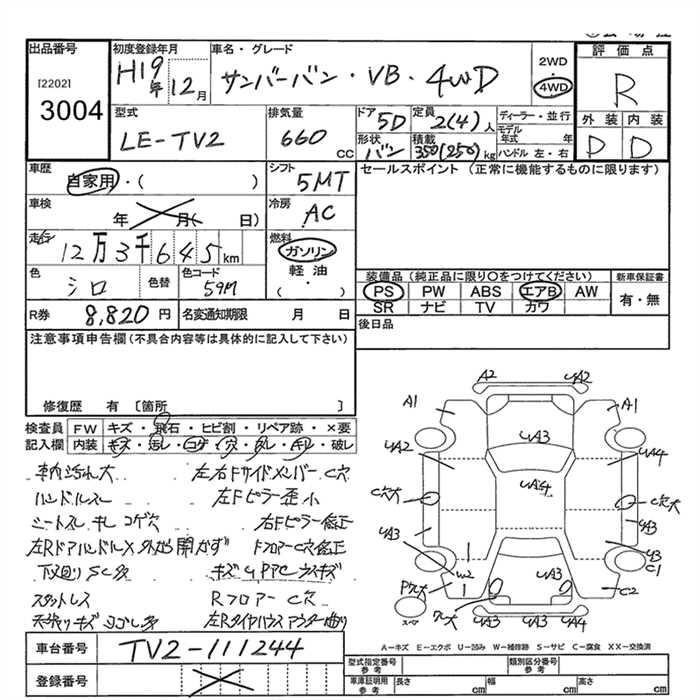 出品番号
[2202]
3004
初度登録年月
H19年12月
車名・グレード
サンバーバン・VB・4WD
2WD
4WD
評価点
R
外装 内装
D D
型式
LE-TV2
排気量
660 CC
ドア
5D
定員
2(4)人
形状
バン
積載
350(250)kg
ディーラー・並行
モデル年式 年
ハンドル 左・右
車歴
自家用・( )
シフト
5MT
セールスポイント (正常に機能するものに限ります)
車検
年 月( 日)
冷房
AC
走行
12万3千645km
燃料
ガソリン
軽油
( )
色
シロ
色替
色コード
59M
装備品 (純正品に限り○をつけてください)
新車保証書
PS PW ABS エアB AW
SR ナビ TV カワ
有・無
R券 8,820円
名変通知期限 月 日
後日品
注意事項申告欄 (不具合内容等は具体的に記入して下さい)
修復歴 有 〔箇所 〕
検査員記入欄
FW キズ・飛石・ヒビ割・リペア跡・×要
内装 キズ・汚し・コゲ・穴・スレ・キレ・破レ
車内汚れ大 左右Fサイドメンバー C穴
ハンドルスレ 左Fピラー歪小
シートスレ キレ コゲ穴 右Fピラー修正
左Rドアハンドル× 外から開かず Fフロアー C穴修正
下廻りSC多
Rフロアー C穴
左Rタイヤハウスアウター曲り
A2 UA2
A1 A1
UA3
UA2 UA4
UA4
C穴大 C穴大
UA3 UA3
W2 UA3 U3
C1
C2
スペア
UA3 UA4
A-キズ E-エクボ U-凹み W-補修跡 S-サビ C-腐食 XX-交換済
車台番号
TV2-111244
登録番号
型式指定番号 参考
類別区分番号 参考
車庫証明用 参考
長さ cm
幅 cm
高さ cm